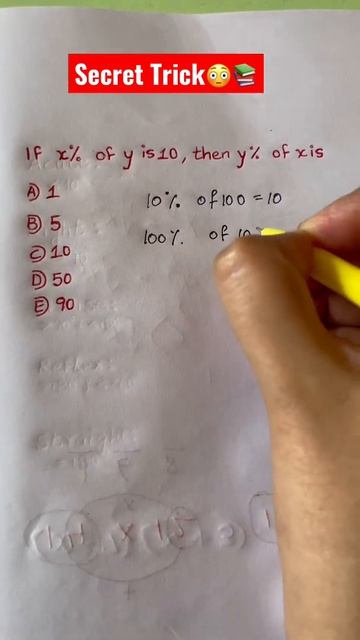 Secret Trick😳📚
If x% of y is 10, then y% of x is
A) 1
B) 5
C) 10
D) 50
E) 90
10% of 100 = 10
100% of 10
14 X 15